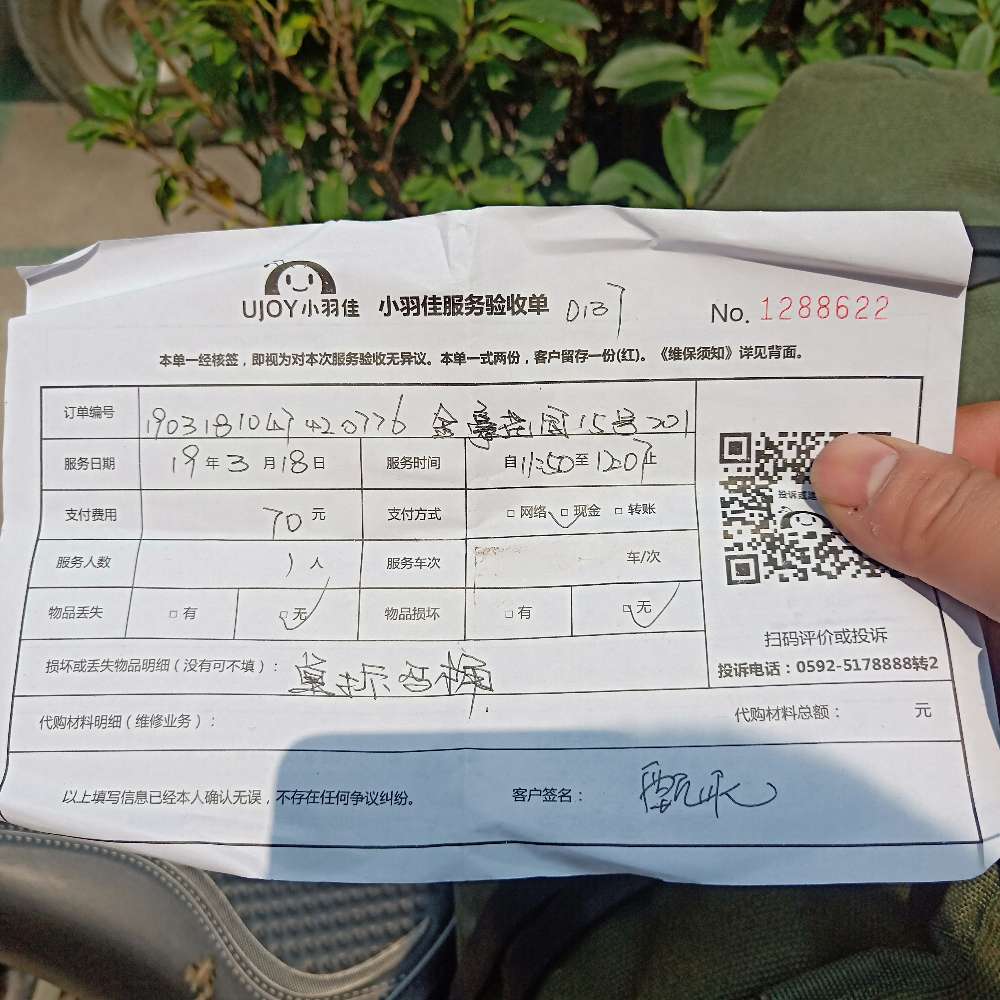 UJOY小羽佳 小羽佳服务验收单 0137 No. 1288622
本单一经核签，即视为对本次服务验收无异议。本单一式两份，客户留存一份(红)。《维保须知》详见背面。
订单编号 190318104742 0776 15号201
服务日期 19年3月18日 服务时间 自11:50至1207止
支付费用 70元 支付方式 □网络 □现金 □转账
服务人数 1人 服务车次 车/次
物品丢失 □有 □无 物品损坏 □有 □无
扫码评价或投诉
投诉电话：0592-5178888转2
损坏或丢失物品明细（没有可不填）：
代购材料明细（维修业务）： 代购材料总额： 元
以上填写信息已经本人确认无误，不存在任何争议纠纷。 客户签名：